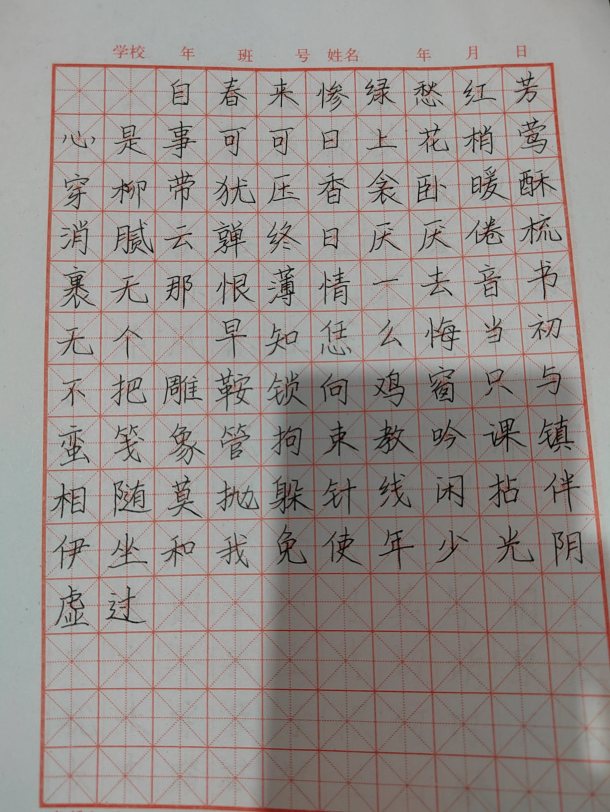 学校 年 班 号 姓名 年 月 日
自春来惨绿愁红芳
心是事可可日上花梢莺
穿柳带犹压香衾卧暖酥
消腻云亸终日厌厌倦梳
裹无那恨薄情一去音书
无个 早知恁么悔当初
不把雕鞍锁向鸡窗只与
蛮笺象管拘束教吟课镇
相随莫抛躲针线闲拈伴
伊坐和我免使年少光阴
虚过